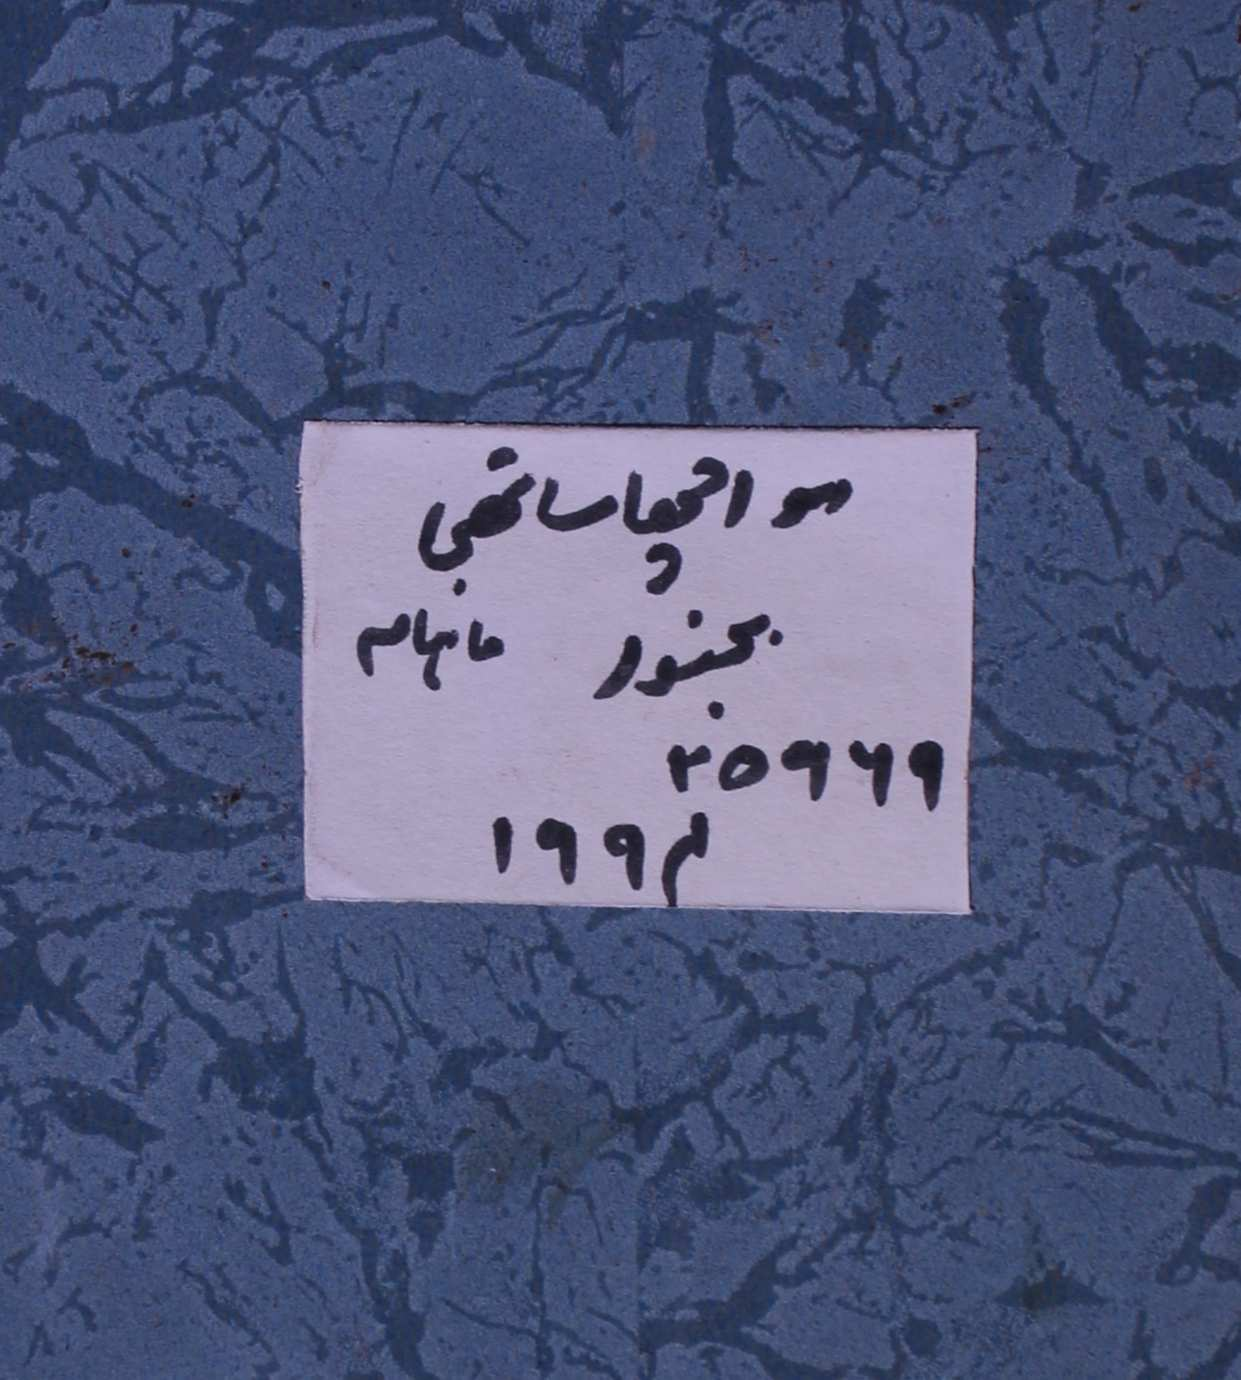 ھو اچھا ساتھی
بجنور ماہنامہ
۲۵۹۶۹
۱۹۹۴